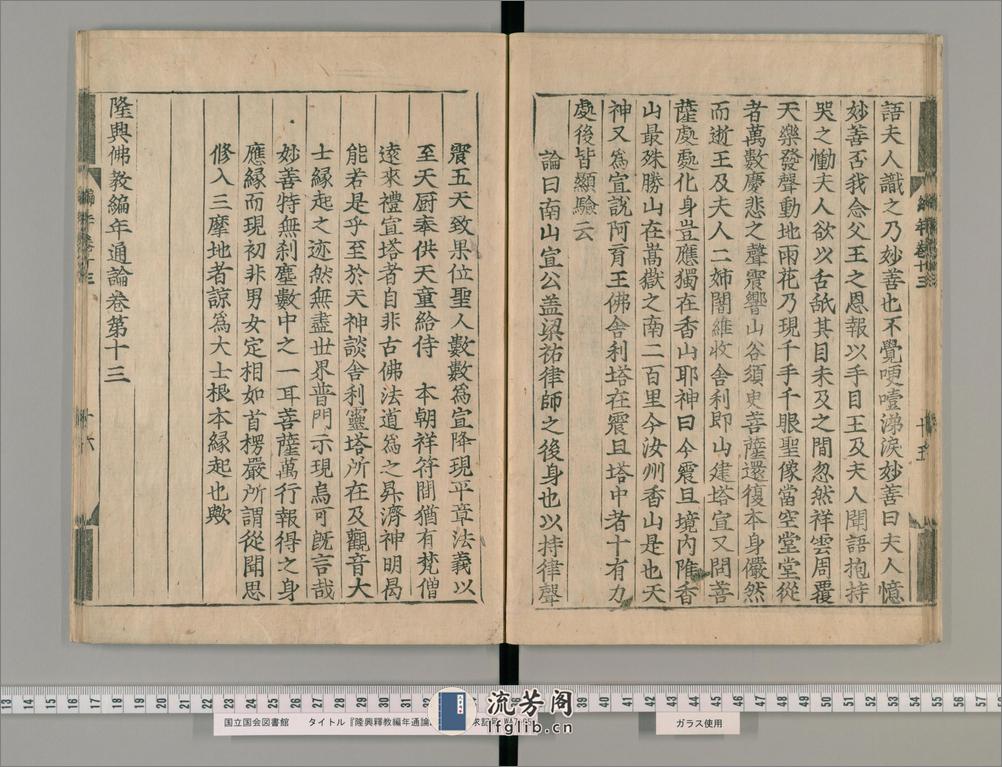 語夫人識之乃妙善也不覺哽噎涕淚妙善曰夫人憶
妙善否我念父王之恩報以手目王及夫人聞語抱持
哭之慟夫人欲以舌舐其目未及之間忽然祥雲周覆
天樂發聲動地雨花乃現千手千眼聖像當空堂堂從
者萬數慶悲之聲震響山谷須臾菩薩還復本身儼然
而逝王及夫人二姊闍維收舍利即山建塔宣又問菩
薩處處化身豈應獨在香山耶神曰今震旦境內唯香
山最殊勝山在嵩嶽之南二百里今汝州香山是也天
神又為宣說阿育王佛舍利塔在震旦塔中者十有九
處後皆顯驗云
論曰南山宣公盖梁祐律師之後身也以持律聲
震五天致果位聖人數數為宣降現平章法義以
至天厨奉供天童給侍 本朝祥符間猶有梵僧
遠來禮宣塔者自非古佛法道為之昇濟神明曷
能若是乎至於天神談舍利靈塔所在及觀音大
士緣起之迹然無盡世界普門示現烏可既言哉
妙善特無刹塵數中之一耳菩薩萬行報得之身
應緣而現初非男女定相如首楞嚴所謂從聞思
修入三摩地者諒為大士根本緣起也歟
隆興佛教編年通論卷第十三
十五
十六
国立国会図書館 タイトル『隆興釋教編年通論
ガラス使用
流芳阁
lfglib.cn
13 14 15 16 17 18 19 20 21 22 23 24 25 26 27 28 29 30 31 32 33 34 35 39 40 41 42 43 44 45 46 47 48 49 50 51 52 53 54 55 56 57